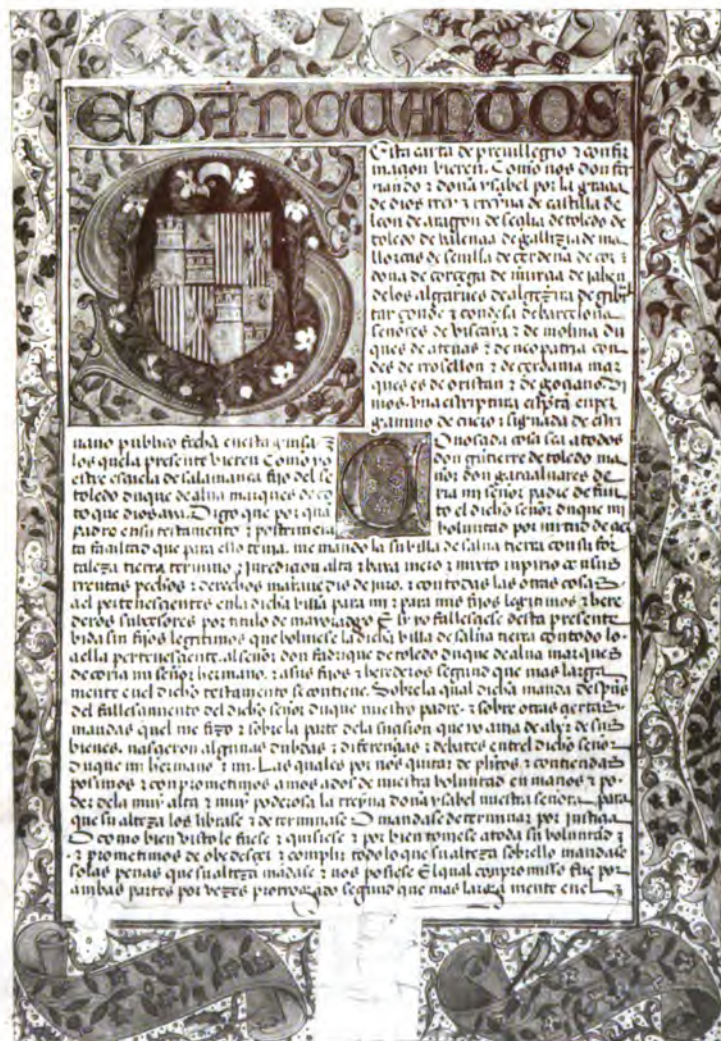 EPAN QUANTOS
Esta carta de preuillegio z confir
maçion vieren. Como nos don fer
nando z doña ysabel por la graçia
de dios rrey z rreyna de castilla de
leon de aragon de seçilia de toledo de
toledo de valençia de gallizia de ma
llorcas de seuilla de çerdeña de cor
doua de corçega de murçia de jahen
delos algarues de algezira de gibral
tar conde z condesa de barçelona
señores de viscaya z de molina du
ques de atenas z de neopatria con
des de rrosellon z de çerdania mar
queses de oristan z de goçiano. Vi
mos vna escriptura escripta en per
gamino de cuero z signada de escri
uano publico fecha enesta guisa
Conosçida cosa sea a todos
los quela presente vieren Como yo
don gutierre de toledo ma
estre escuela de salamanca fijo del se
ñor don garçialuares de
toledo duque de alua marques de co
ria mi señor padre defun
to que dios aya. Digo que por quanto
el dicho señor duque mi
padre en su testamento z postrimera
voluntad por virtud de çier
ta facultad que para ello tenia. me mando la su villa de salua tierra con su for
taleza tierra termino z jurediçion alta z baxa mero z mixto inperio con sus
rrentas pechos z derechos marauedis de juro. z con todas las otras cosas
a el perteneçientes enla dicha villa para mi z para mis fijos legitimos z here
deros subçesores por titulo de mayoradgo E si yo fallesçiese desta presente
vida sin fijos legitimos que boluiese la dicha villa de salua tierra con todo lo
a ella perteneçiente. al señor don fadrique de toledo duque de alua marques
de coria mi señor hermano. z a sus fijos z herederos segund que mas larga
mente enel dicho testamento se contiene. Sobre la qual dicha manda despues
del fallesçimiento del dicho señor duque nuestro padre. z sobre otras çiertas
mandas quel me fizo z sobre la parte dela suçision que yo auia de aver de sus
bienes. nasçieron algunas dubdas z diferençias z debates entrel dicho señor
duque mi hermano z mi. Las quales por nos quitar de pleitos z contiendas
posimos z conprometimos amos ados de nuestra voluntad en manos z po
der dela muy alta z muy poderosa la rreyna doña ysabel nuestra señora para
que su alteza los librase z determinase O mandase determinar por justiçia
O como bien visto le fuese z quisiese z por bien touiese a toda su voluntad
z prometimos de obedesçer z complir todo lo que su alteza sobrello mandase
solas penas que su alteza mandase z nos posiese El qual conpromisso fue por
ambas partes por vezes prorrogado segund que mas larga mente enel